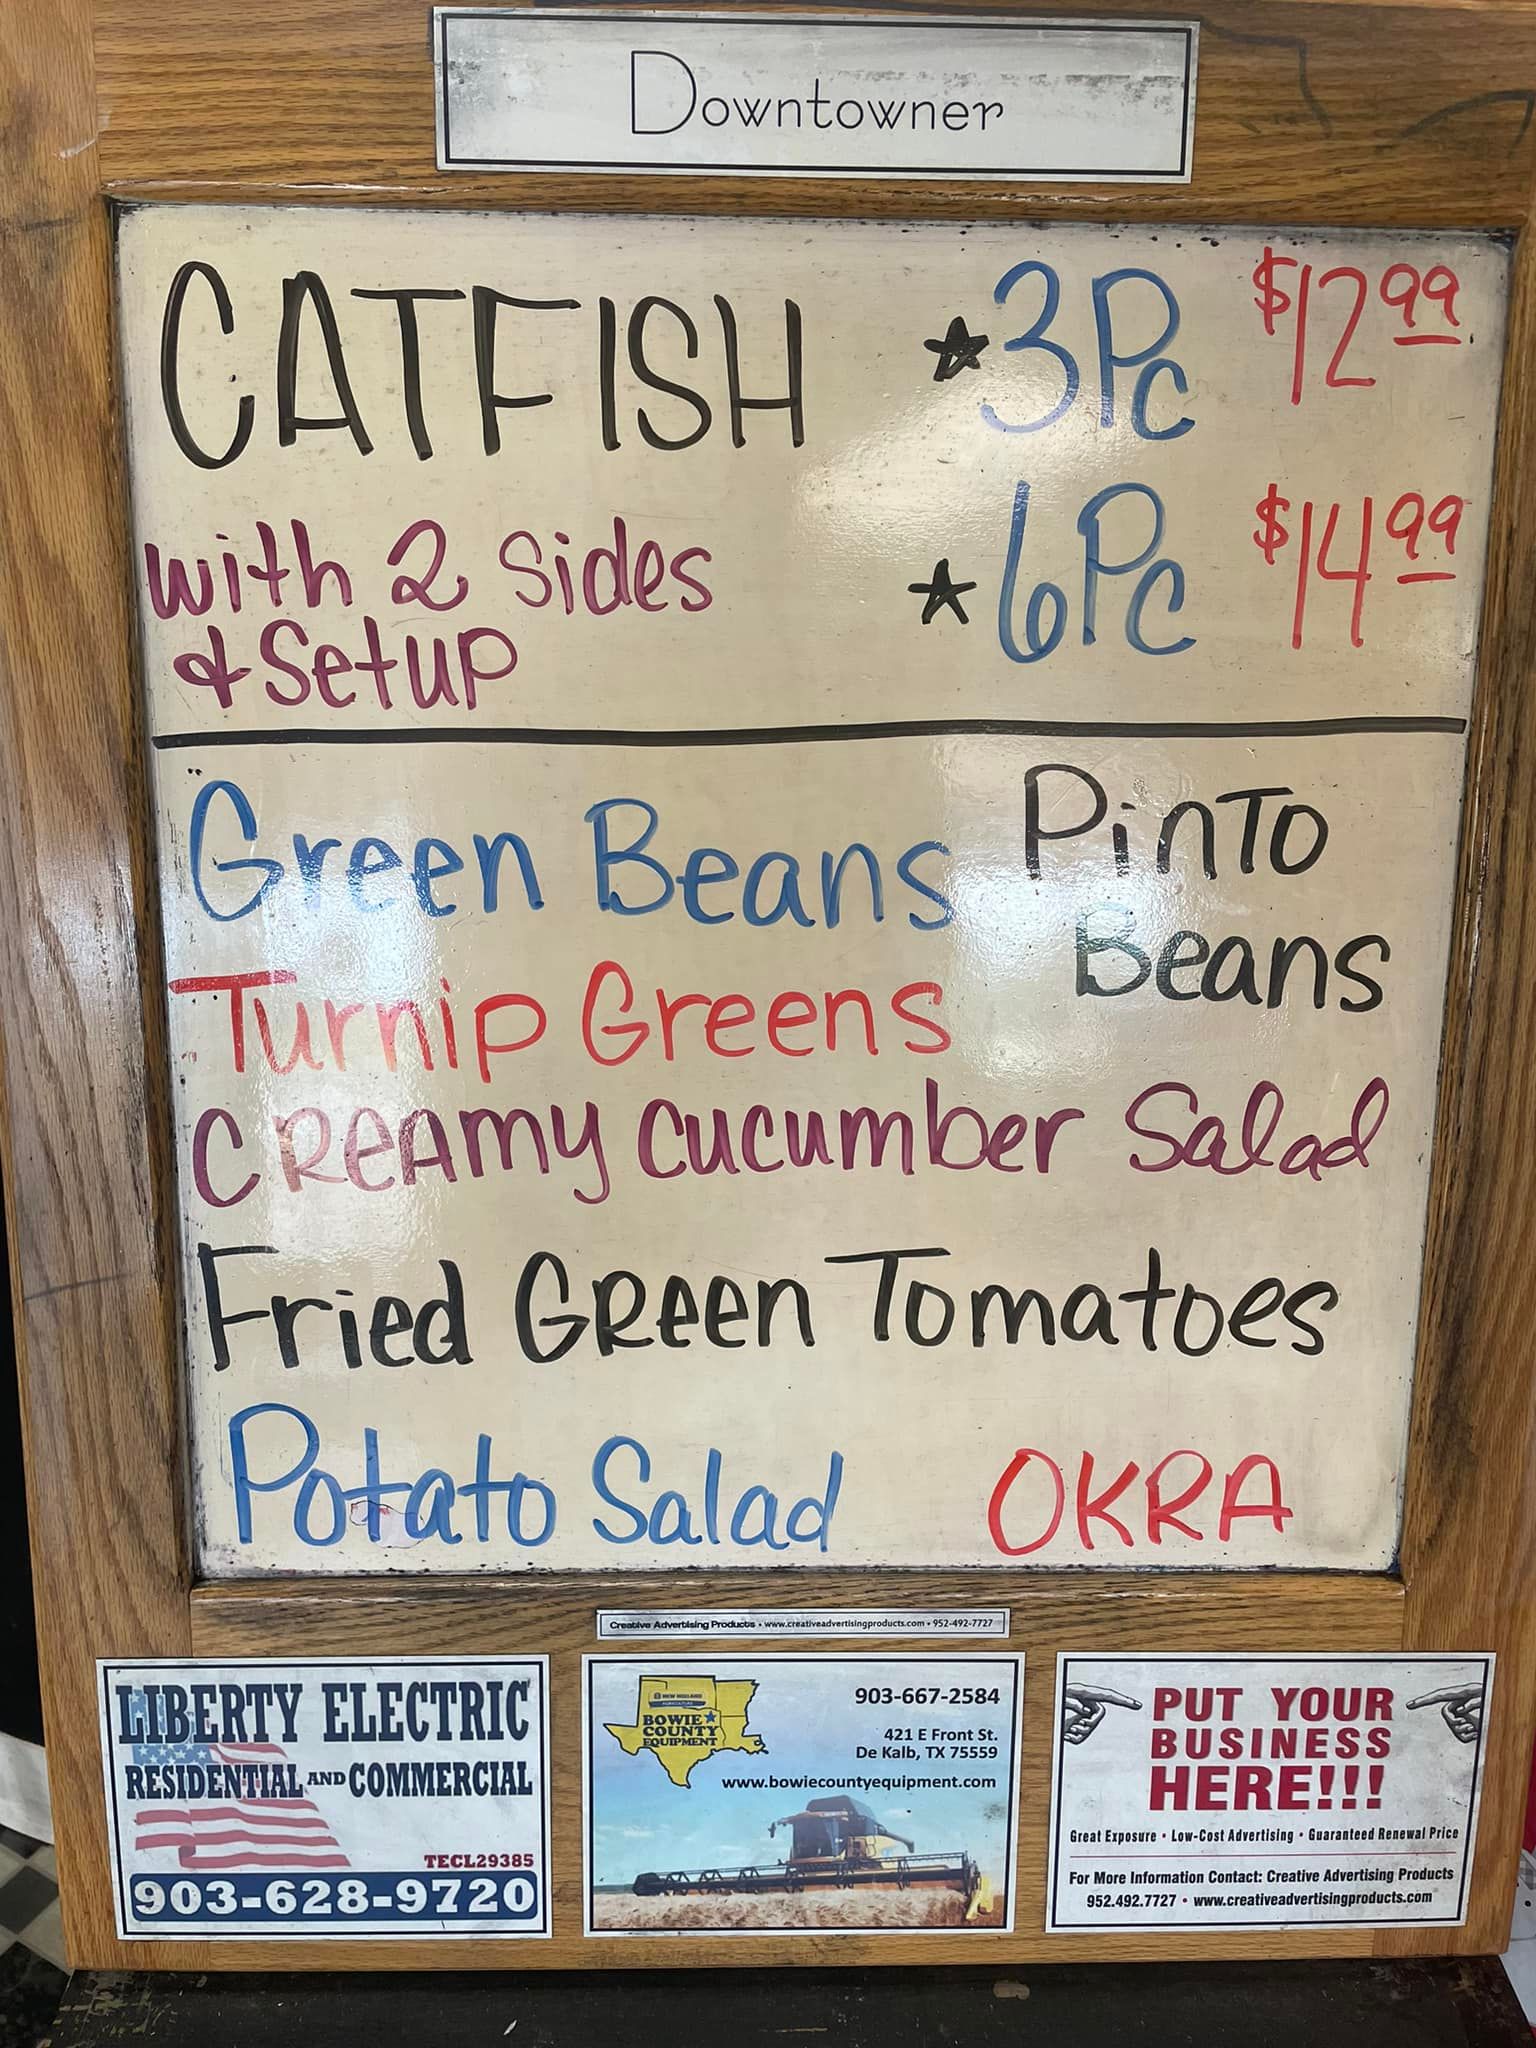 Downtowner
CATFISH ★3Pc $12.99
with 2 sides ★6Pc $14.99
& Setup
Green Beans Pinto
Beans
Turnip Greens
Creamy Cucumber Salad
Fried Green Tomatoes
Potato Salad OKRA
Creative Advertising Products • www.creativeadvertisingproducts.com • 952-492-7727
LIBERTY ELECTRIC
RESIDENTIAL AND COMMERCIAL
TECL29385
903-628-9720
NEW HOLLAND
AGRICULTURE
BOWIE
COUNTY
EQUIPMENT
903-667-2584
421 E Front St.
De Kalb, TX 75559
www.bowiecountyequipment.com
PUT YOUR
BUSINESS
HERE!!!
Great Exposure • Low-Cost Advertising • Guaranteed Renewal Price
For More Information Contact: Creative Advertising Products
952.492.7727 • www.creativeadvertisingproducts.com